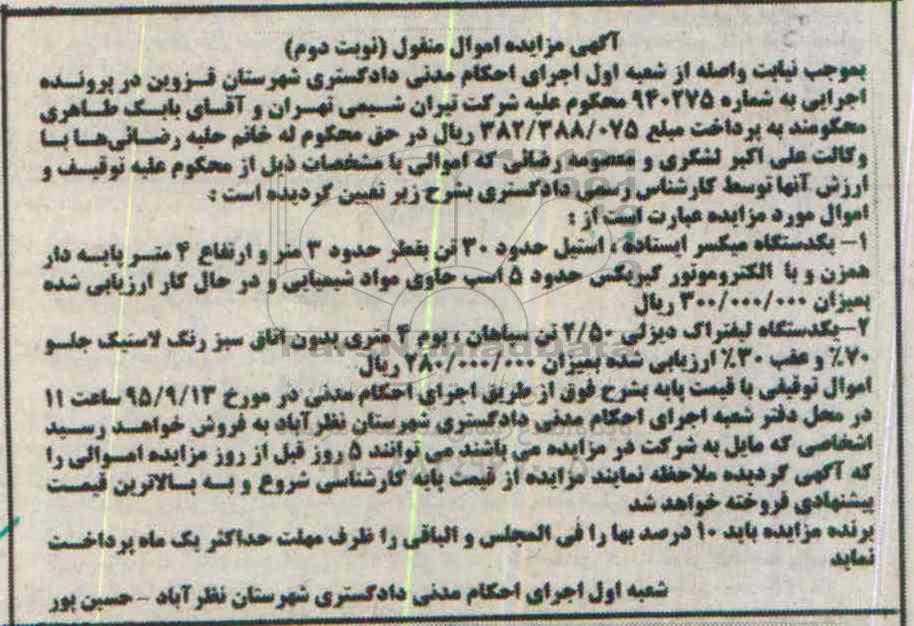 آگهی مزایده اموال منقول (نوبت دوم)
بموجب نیابت واصله از شعبه اول اجرای احکام مدنی دادگستری شهرستان قزوین در پرونده
اجرایی به شماره ۹۴۰۲۷۵ محکوم علیه شرکت تیران شیمی تهران و آقای بابک طاهری
محکومند به پرداخت مبلغ ۳۸۲/۳۸۸/۰۷۵ ریال در حق محکوم له خانم حلبه رضائی‌ها با
وکالت علی اکبر لشگری و معصومه رضائی که اموالی با مشخصات ذیل از محکوم علیه توقیف و
ارزش آنها توسط کارشناس رسمی دادگستری بشرح زیر تعیین گردیده است :
اموال مورد مزایده عبارت است از :
۱- یکدستگاه میکسر ایستاده ، استیل حدود ۳۰ تن بقطر حدود ۳ متر و ارتفاع ۴ متر پایه دار
همزن و با الکتروموتور گیربکس حدود ۵ اسب حاوی مواد شیمیایی و در حال کار ارزیابی شده
بمیزان ۳۰۰/۰۰۰/۰۰۰ ریال
۲-یکدستگاه لیفتراک دیزلی ۲/۵۰ تن سپاهان ، بوم ۴ متری بدون اتاق سبز رنگ لاستیک جلو
۷۰٪ و عقب ۳۰٪ ارزیابی شده بمیزان ۲۸۰/۰۰۰/۰۰۰ ریال
اموال توقیفی با قیمت پایه بشرح فوق از طریق اجرای احکام مدنی در مورخ ۹۵/۹/۱۳ ساعت ۱۱
در محل دفتر شعبه اجرای احکام مدنی دادگستری شهرستان نظرآباد به فروش خواهد رسید
اشخاصی که مایل به شرکت در مزایده می باشند می توانند ۵ روز قبل از روز مزایده اموالی را
که آگهی گردیده ملاحظه نمایند مزایده از قیمت پایه کارشناسی شروع و به بالاترین قیمت
پیشنهادی فروخته خواهد شد
برنده مزایده باید ۱۰ درصد بها را فی المجلس و الباقی را ظرف مهلت حداکثر یک ماه پرداخت
نماید
شعبه اول اجرای احکام مدنی دادگستری شهرستان نظرآباد - حسین پور